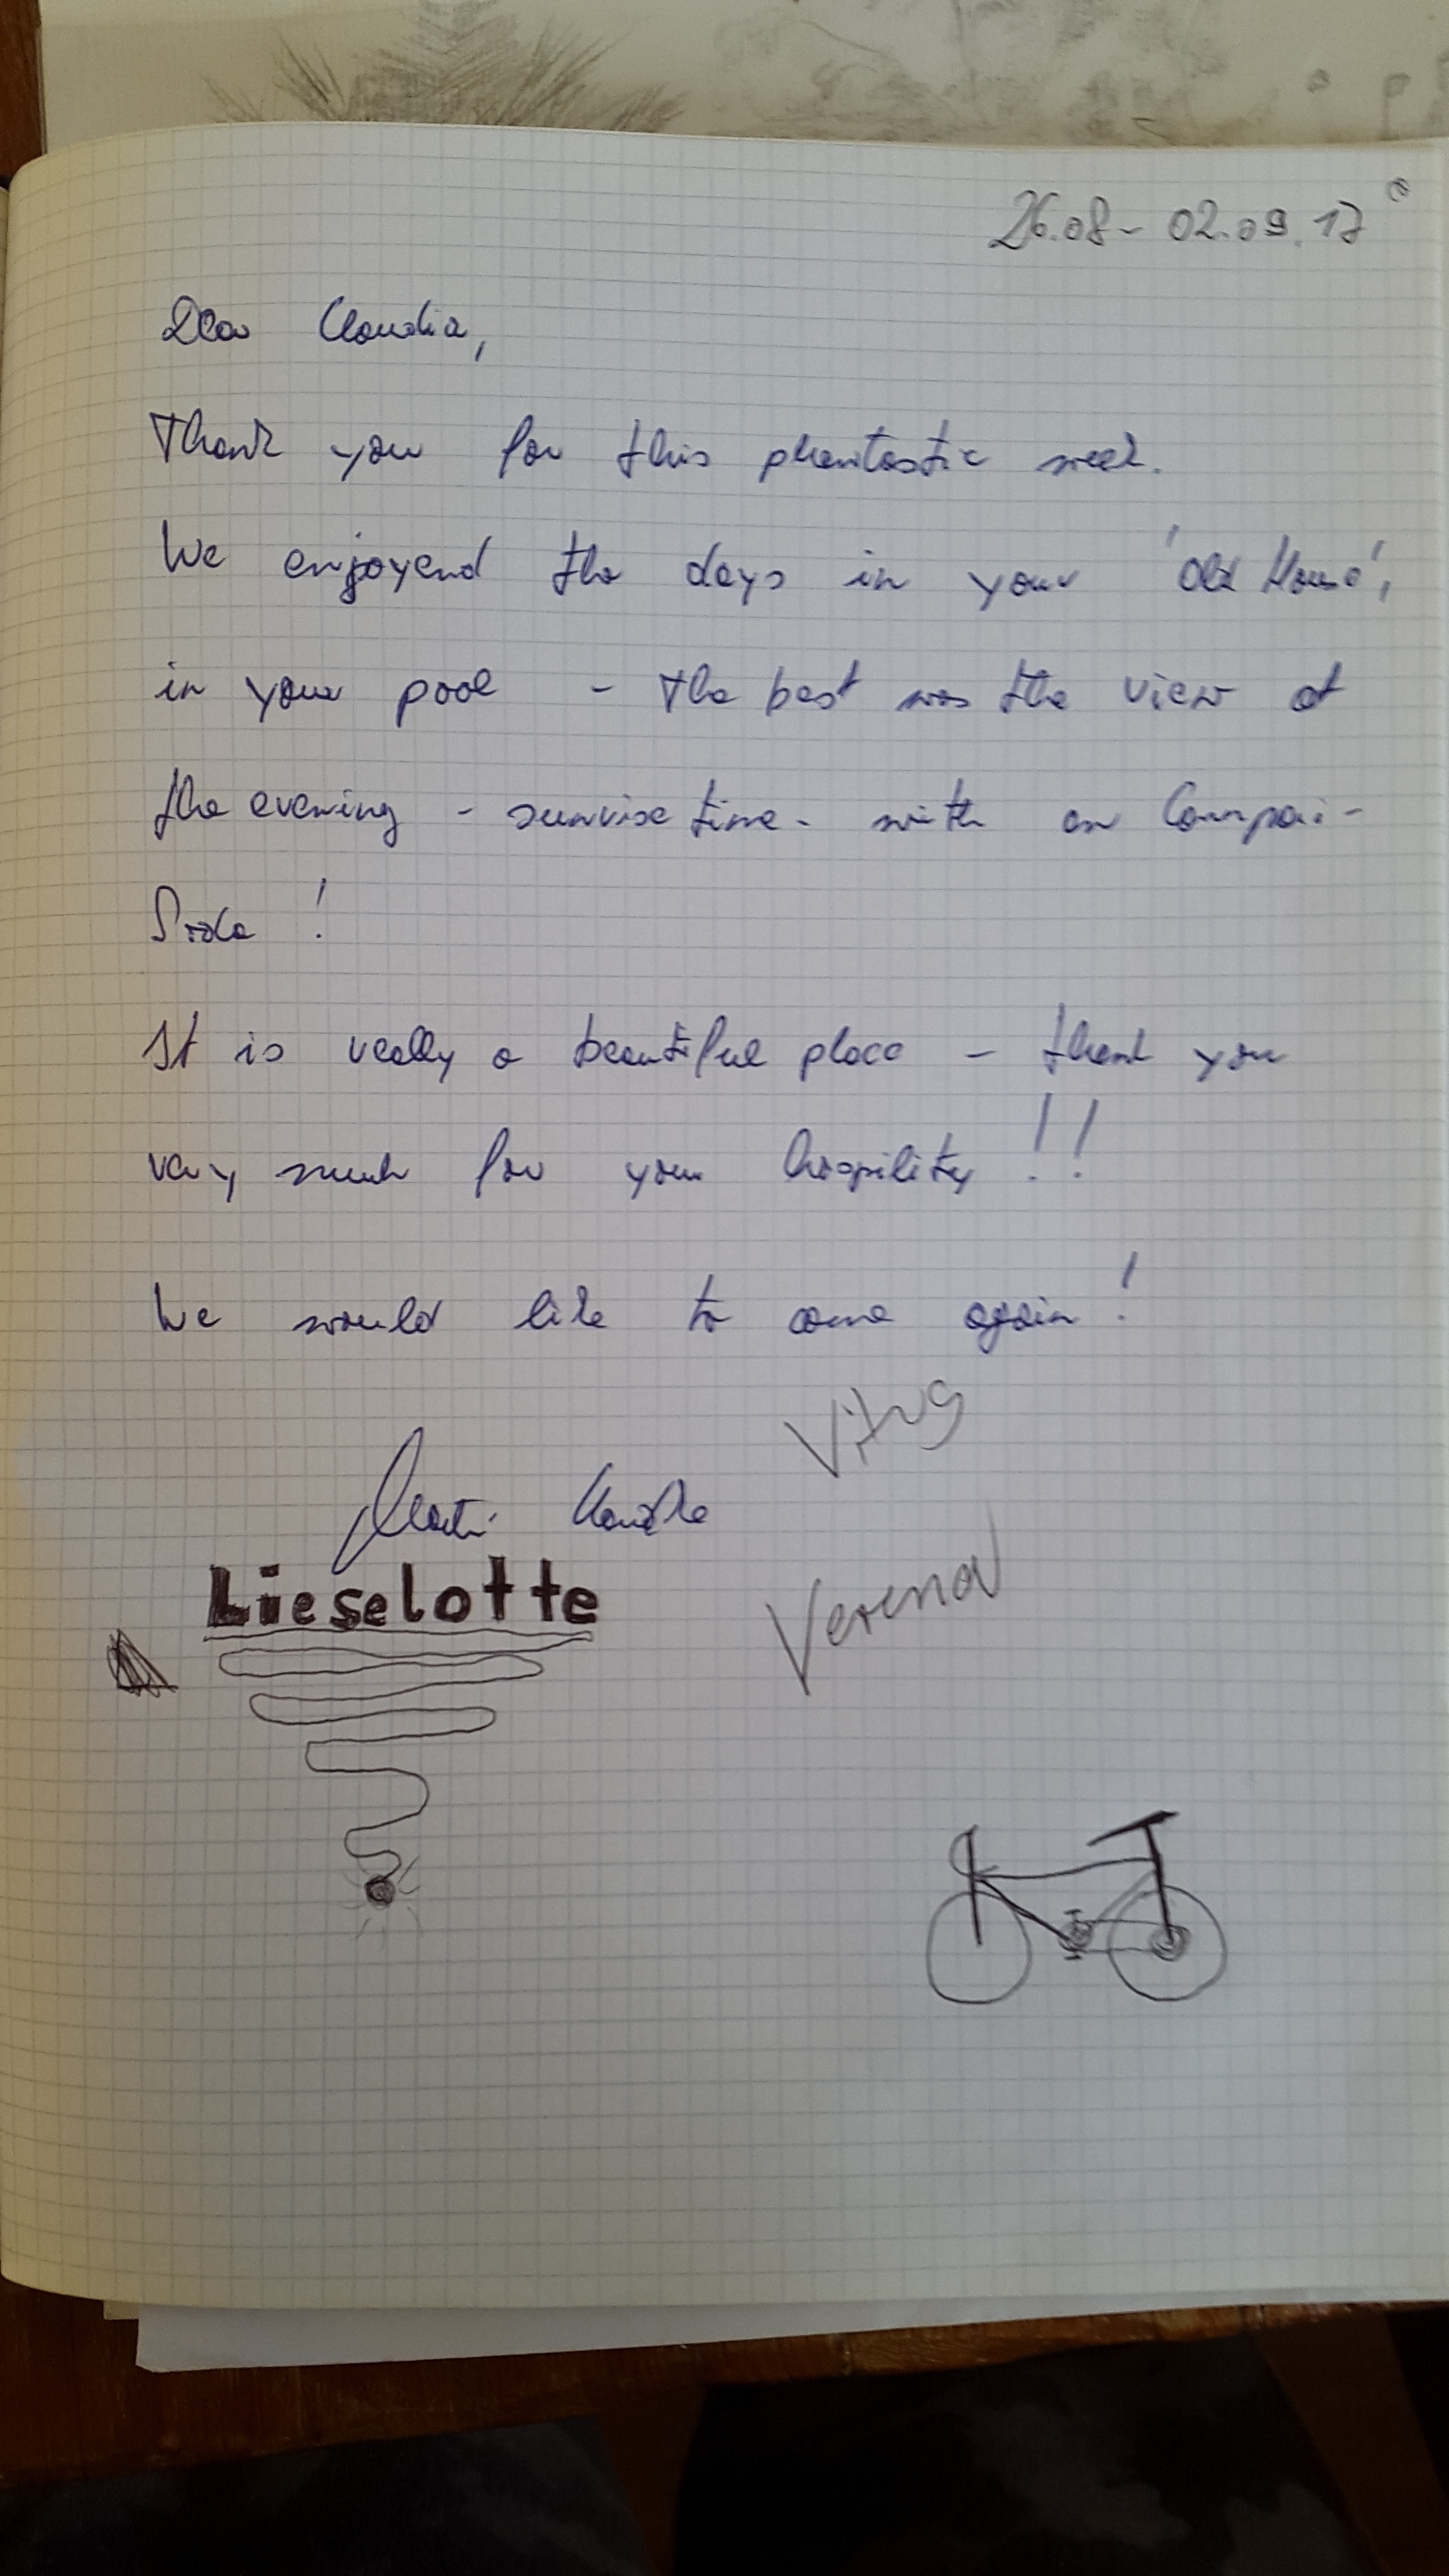 26.08 - 02.09.17
Dear Claudia,
Thank you for this phantastic week.
We enjoyend the days in your 'Old House',
in your pool - the best was the view at
the evening - sunrise time - with an Campari-
Soda!
It is really a beautiful place - thank you
very much for your hospility!!
We would like to come again!
Lieselotte
Verena